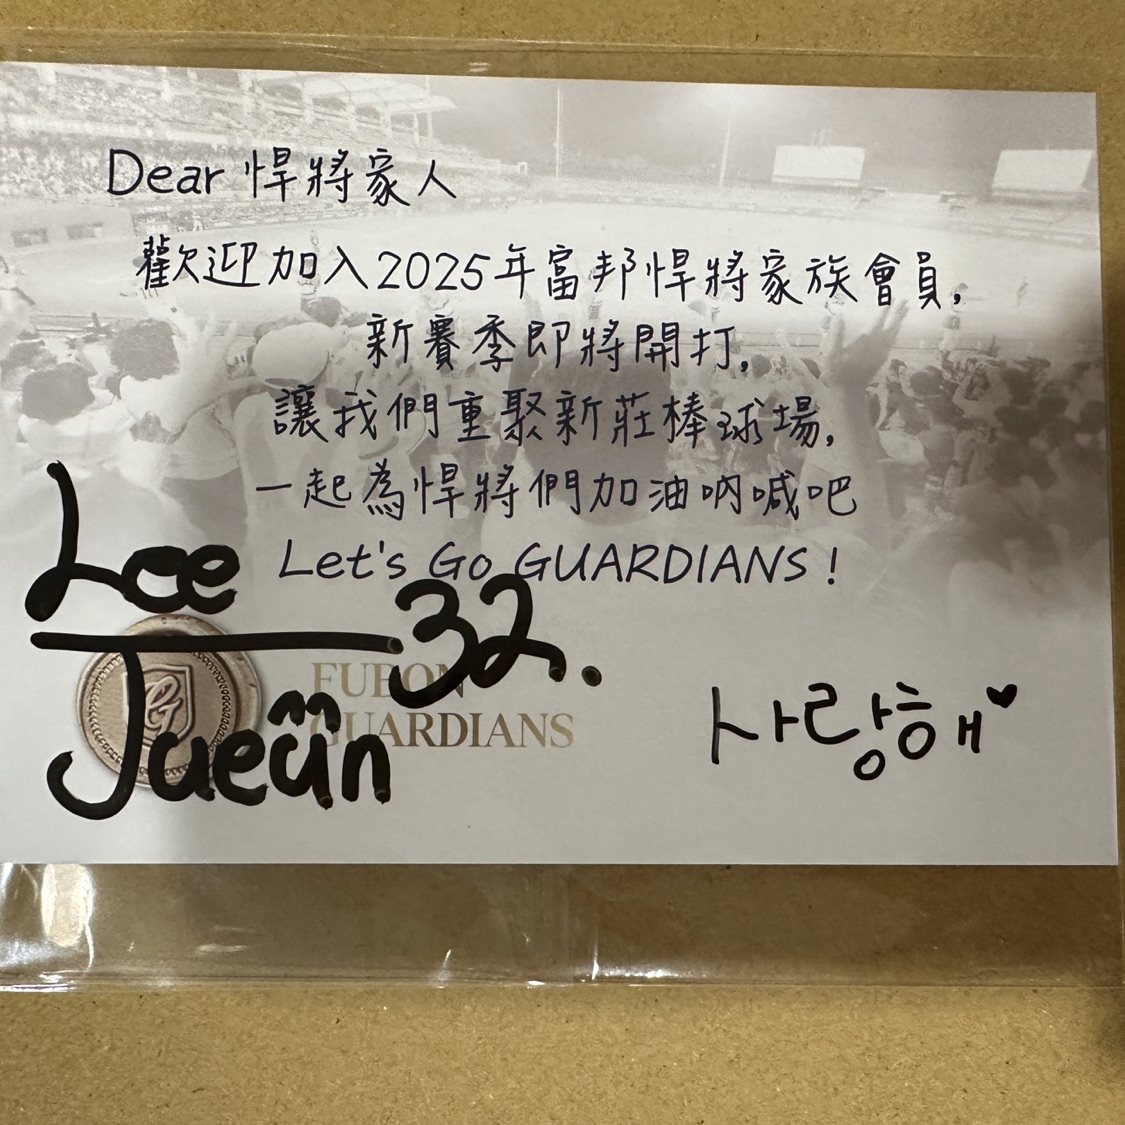 Dear 悍將家人
歡迎加入2025年富邦悍將家族會員,
新賽季即將開打,
讓我們重聚新莊棒球場,
一起為悍將們加油吶喊吧
Let's Go GUARDIANS!
Lee
32.
Jaeân
FUBON
GUARDIANS
사랑해♥